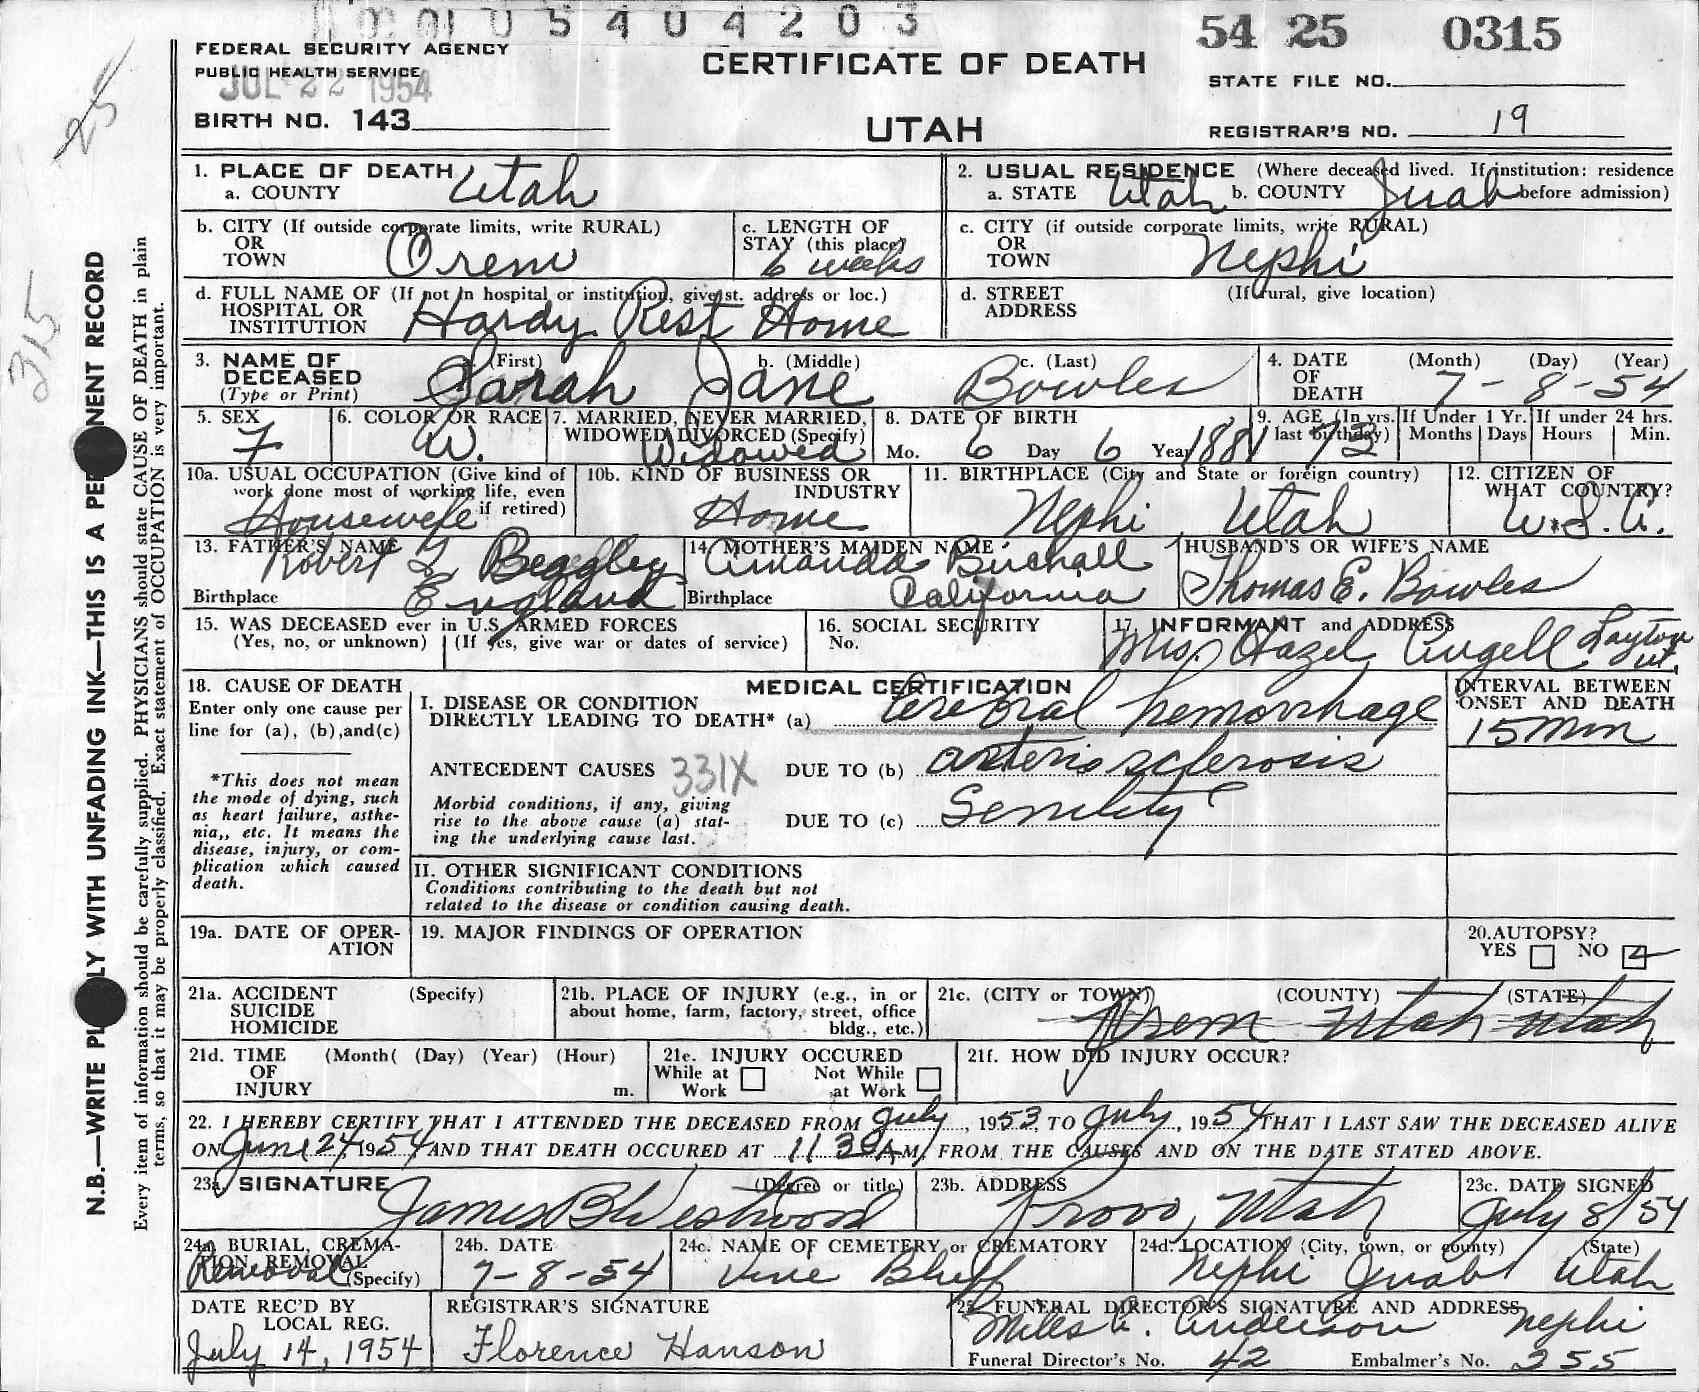 0 5 4 0 4 2 0 3
54 25 0315
FEDERAL SECURITY AGENCY
PUBLIC HEALTH SERVICE
JUL 22 1954
CERTIFICATE OF DEATH
UTAH
STATE FILE NO.
BIRTH NO. 143
REGISTRAR'S NO. 19
25
315
N.B.—WRITE PLAINLY WITH UNFADING INK—THIS IS A PERMANENT RECORD
Every item of information should be carefully supplied. PHYSICIANS should state CAUSE OF DEATH in plain
terms, so that it may be properly classified. Exact statement of OCCUPATION is very important.
1. PLACE OF DEATH
a. COUNTY Utah
2. USUAL RESIDENCE (Where deceased lived. If institution: residence
a. STATE Utah b. COUNTY Juab before admission)
b. CITY (If outside corporate limits, write RURAL)
OR
TOWN Orem
c. LENGTH OF
STAY (this place)
6 weeks
c. CITY (if outside corporate limits, write RURAL)
OR
TOWN Nephi
d. FULL NAME OF (If not in hospital or institution, give st. address or loc.)
HOSPITAL OR
INSTITUTION Hardy Rest Home
d. STREET (If rural, give location)
ADDRESS
3. NAME OF
DECEASED
(Type or Print)
(First) b. (Middle) c. (Last)
Sarah Jane Bowles
4. DATE (Month) (Day) (Year)
OF
DEATH 7-8-54
5. SEX
F
6. COLOR OR RACE
W.
7. MARRIED, NEVER MARRIED,
WIDOWED, DIVORCED (Specify)
Widowed
8. DATE OF BIRTH
Mo. 6 Day 6 Year 1881
9. AGE (In yrs.
last birthday) 73
If Under 1 Yr.
Months Days
If under 24 hrs.
Hours Min.
10a. USUAL OCCUPATION (Give kind of
work done most of working life, even
if retired)
Housewife
10b. KIND OF BUSINESS OR
INDUSTRY
Home
11. BIRTHPLACE (City and State or foreign country)
Nephi Utah
12. CITIZEN OF
WHAT COUNTRY?
U.S.A.
13. FATHER'S NAME
Robert Beagley
Birthplace England
14. MOTHER'S MAIDEN NAME
Amanda Buchall
Birthplace California
HUSBAND'S OR WIFE'S NAME
Thomas E. Bowles
15. WAS DECEASED ever in U.S. ARMED FORCES
(Yes, no, or unknown) (If yes, give war or dates of service)
16. SOCIAL SECURITY
No.
17. INFORMANT and ADDRESS
Mrs. Hazel Angell Layton Ut.
18. CAUSE OF DEATH
Enter only one cause per
line for (a), (b), and (c)
*This does not mean
the mode of dying, such
as heart failure, asthe-
nia,, etc. It means the
disease, injury, or com-
plication which caused
death.
MEDICAL CERTIFICATION
I. DISEASE OR CONDITION
DIRECTLY LEADING TO DEATH* (a) Cerebral hemorrhage
INTERVAL BETWEEN
ONSET AND DEATH
15 Min
ANTECEDENT CAUSES 331X DUE TO (b) arteriosclerosis
Morbid conditions, if any, giving
rise to the above cause (a) stat-
ing the underlying cause last.
DUE TO (c) Senility
II. OTHER SIGNIFICANT CONDITIONS
Conditions contributing to the death but not
related to the disease or condition causing death.
19a. DATE OF OPER-
ATION
19. MAJOR FINDINGS OF OPERATION
20. AUTOPSY?
YES NO
21a. ACCIDENT (Specify)
SUICIDE
HOMICIDE
21b. PLACE OF INJURY (e.g., in or
about home, farm, factory, street, office
bldg., etc.)
21c. (CITY or TOWN) (COUNTY) (STATE)
Orem Utah Utah
21d. TIME (Month( (Day) (Year) (Hour)
OF
INJURY m.
21e. INJURY OCCURED
While at Not While
Work at Work
21f. HOW DID INJURY OCCUR?
22. I HEREBY CERTIFY THAT I ATTENDED THE DECEASED FROM July, 1953 TO July, 1954 THAT I LAST SAW THE DECEASED ALIVE
ON June 24 1954 AND THAT DEATH OCCURED AT 11 30 A M, FROM THE CAUSES AND ON THE DATE STATED ABOVE.
23a. SIGNATURE (Degree or title)
James B Westwood
23b. ADDRESS
Provo, Utah
23c. DATE SIGNED
July 8/54
24a. BURIAL, CREMA-
TION, REMOVAL
(Specify)
Removal
24b. DATE
7-8-54
24c. NAME OF CEMETERY or CREMATORY
Vine Bluff
24d. LOCATION (City, town, or county) (State)
Nephi Juab Utah
DATE REC'D BY
LOCAL REG.
July 14, 1954
REGISTRAR'S SIGNATURE
Florence Hanson
25. FUNERAL DIRECTOR'S SIGNATURE AND ADDRESS
Miles A. Anderson Nephi
Funeral Director's No. 42 Embalmer's No. 255